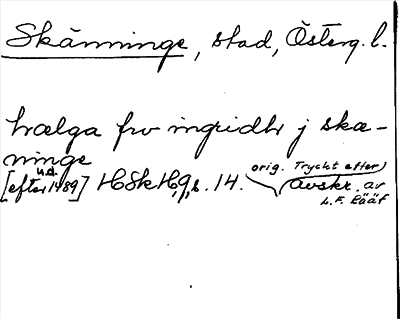 Skänninge, stad, Österg. l.
hælga frv ingridh j skæ-
ninge
u.d.
[efter 1489] HSkH, 9, s. 14. orig. Tryckt efter)
(avskr. av
L.F. Rääf